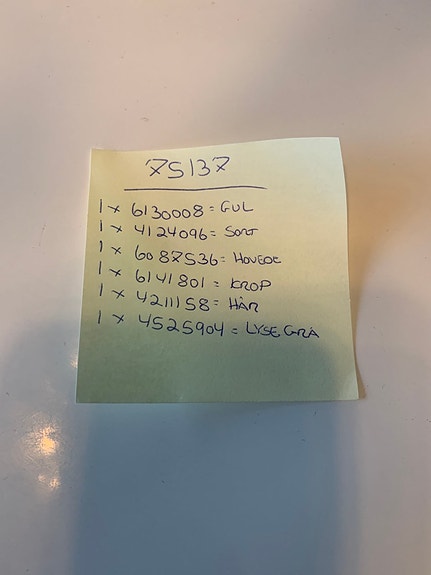 75137
1 x 6130008 = GUL
1 x 4124096 = SORT
1 x 6087536 = HOVEDE
1 x 6141801 = KROP
1 x 4211158 = HÅR
1 x 4525904 = LYSE GRÅ